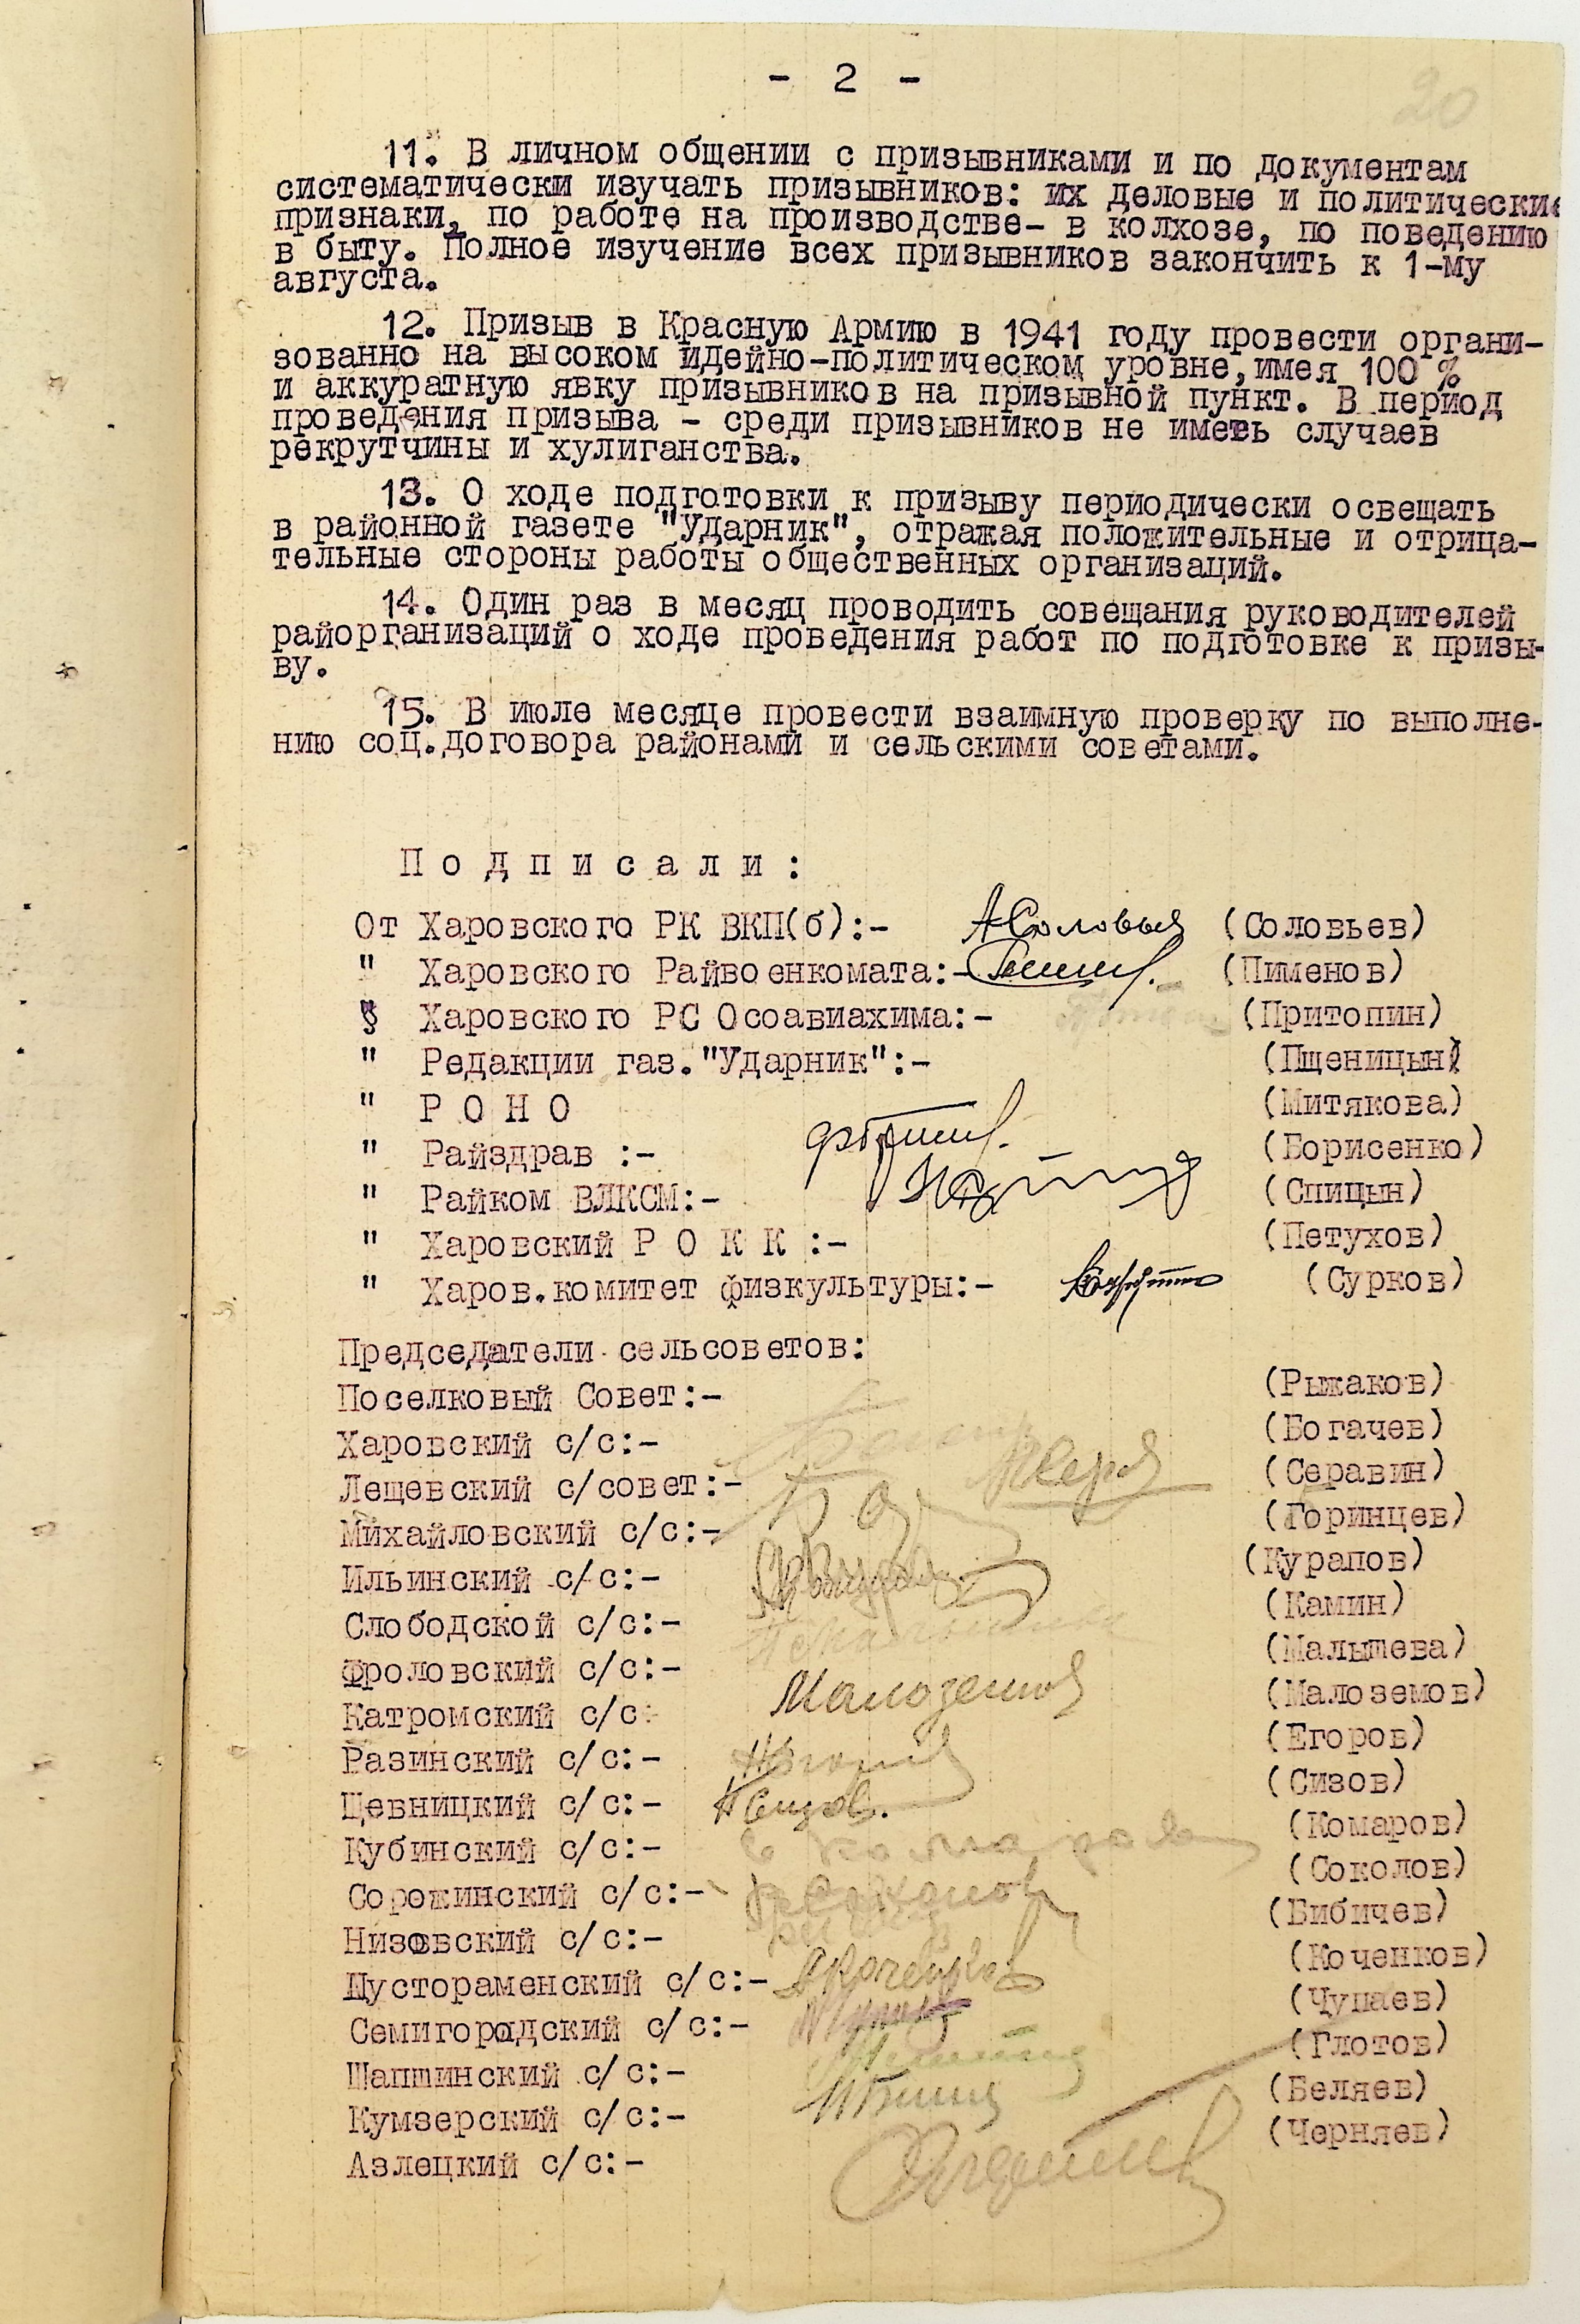 - 2 -
20
11. В личном общении с призывниками и по документам
систематически изучать призывников: их деловые и политически
признаки, по работе на производстве- в колхозе, по поведению
в быту. Полное изучение всех призывников закончить к 1-му
августа.
12. Призыв в Красную Армию в 1941 году провести органи-
зованно на высоком идейно-политическом уровне, имея 100 %
и аккуратную явку призывников на призывной пункт. В период
проведения призыва - среди призывников не иметь случаев
рекрутчины и хулиганства.
13. О ходе подготовки к призыву периодически освещать
в районной газете "Ударник", отражая положительные и отрица-
тельные стороны работы общественных организаций.
14. Один раз в месяц проводить совещания руководителей
райорганизаций о ходе проведения работ по подготовке к призы-
ву.
15. В июле месяце провести взаимную проверку по выполне-
нию соц.договора районами и сельскими советами.
Подписали:
От Харовского РК ВКП(б):- АСоловьев (Соловьев)
" Харовского Райвоенкомата:- (Пименов)
§ Харовского РС Осоавиахима:- (Притопин)
" Редакции газ."Ударник":- (Пщеницын)
" Р О Н О (Митякова)
" Райздрав :- (Борисенко)
" Райком ВЛКСМ:- (Спицын)
" Харовский Р О К К :- (Петухов)
" Харов.комитет физкультуры:- (Сурков)
Председатели сельсоветов:
Поселковый Совет:- (Рыжаков)
Харовский с/с:- (Богачев)
Лещевский с/совет:- (Серавин)
Михайловский с/с:- (Горинцев)
Ильинский с/с:- (Курапов)
Слободской с/с:- (Камин)
Фроловский с/с:- (Малышева)
Катромский с/с- Малоземов (Малоземов)
Разинский с/с:- (Егоров)
Шевницкий с/с:- НСизов. (Сизов)
Кубинский с/с:- Комаров (Комаров)
Сорожинский с/с:- (Соколов)
Низовский с/с:- (Бибичев)
Пустораменский с/с:- АКоченков (Коченков)
Семигородский с/с:- (Чупаев)
Шапшинский с/с:- (Глотов)
Кумзерский с/с:- (Беляев)
Азлецкий с/с:- (Черняев)